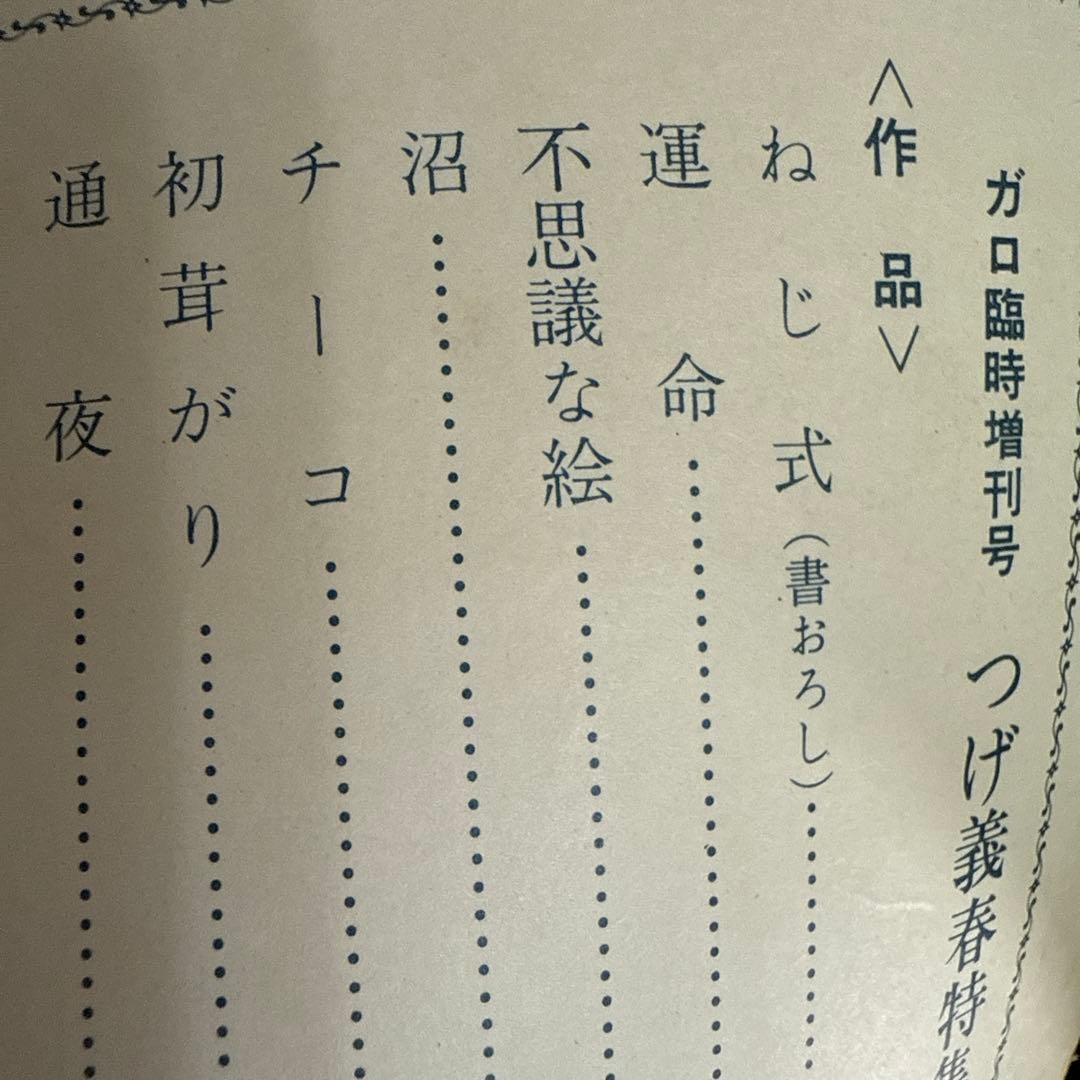 ガロ臨時増刊号 つげ義春特集
<作品>
ねじ式(書おろし)……………
運命……………………
不思議な絵……………………
沼……………………………
チーコ……………………
初茸がり……………………
通夜……………………